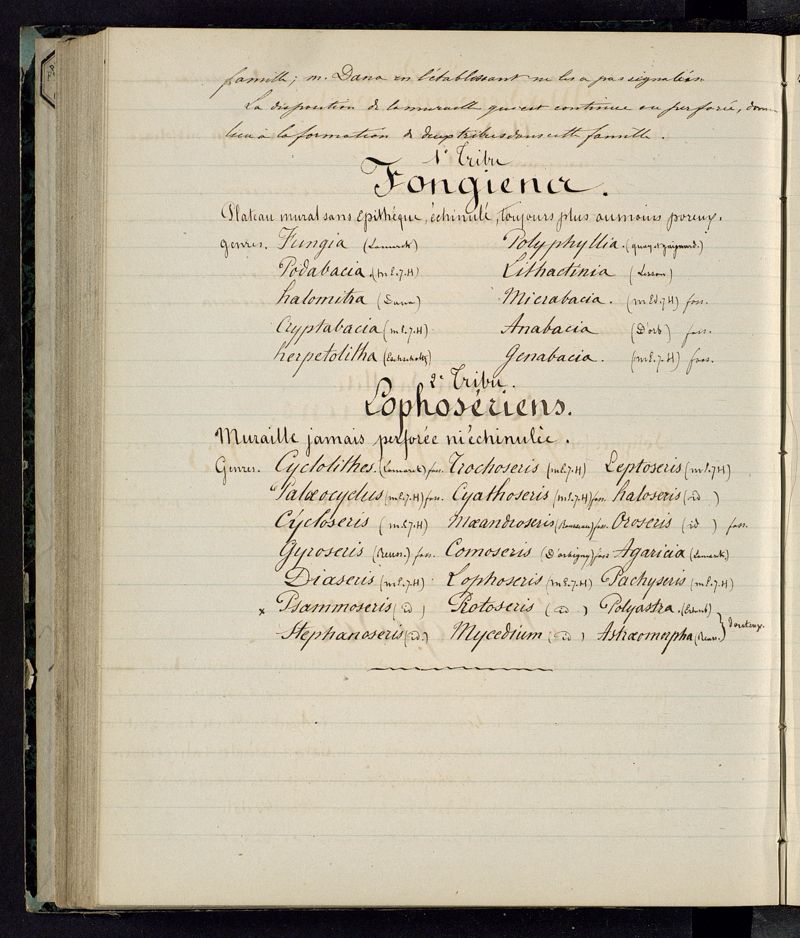 famille; m. Dana en l'établissant ne les a pas signalées
La disposition de la muraille qui est continue ou perforée, donne
lieu à la formation de deux tribus dans cette famille.
1e Tribu
Fongiena.
Plateau mural sans épithèque, échinulé, toujours plus ou moins poreux.
genres. Fungia (Lamarck) Polyphyllia. (quoy et gaimard.)
Podabacia (m.E.7.H) Lithactinia (Lesson)
halomitra (Dana) Micrabacia. (m.Ed.7H) foss.
Cryptabacia (m.E.7.H) Anabacia (D'orb) foss.
herpetolitha (Eschscholtz) Genabacia. (m.E.7.H) foss.
2e Tribu.
Lophosériens.
Muraille jamais perforée ni échinulée.
Genres. Cyclolithes. (Lamarck) foss. Trochoseris (m.E.7H) Leptoseris (m.E.7H)
Palæocyclus (m.E.7.H) foss. Cyathoseris (m.E.7.H) foss. haloseris (id)
Cycloseris (m.E.7H) Mæandroseris (Rousseau) foss. Oroseris (id) foss.
Gyroseris (Reuss.) foss. Comoseris (D'orbigny) foss Agaricia (Lamarck)
Diaseris (m.E.7.H) Lophoseris (m.E.7.H) Pachyseris (m.E.7.H)
x Psammoseris (id) Protoseris (id) Polyastra. (Ehremb)
Stephanoseris (id.) Mycedium (id) Astræomorpha (Reuss.) } douteux.